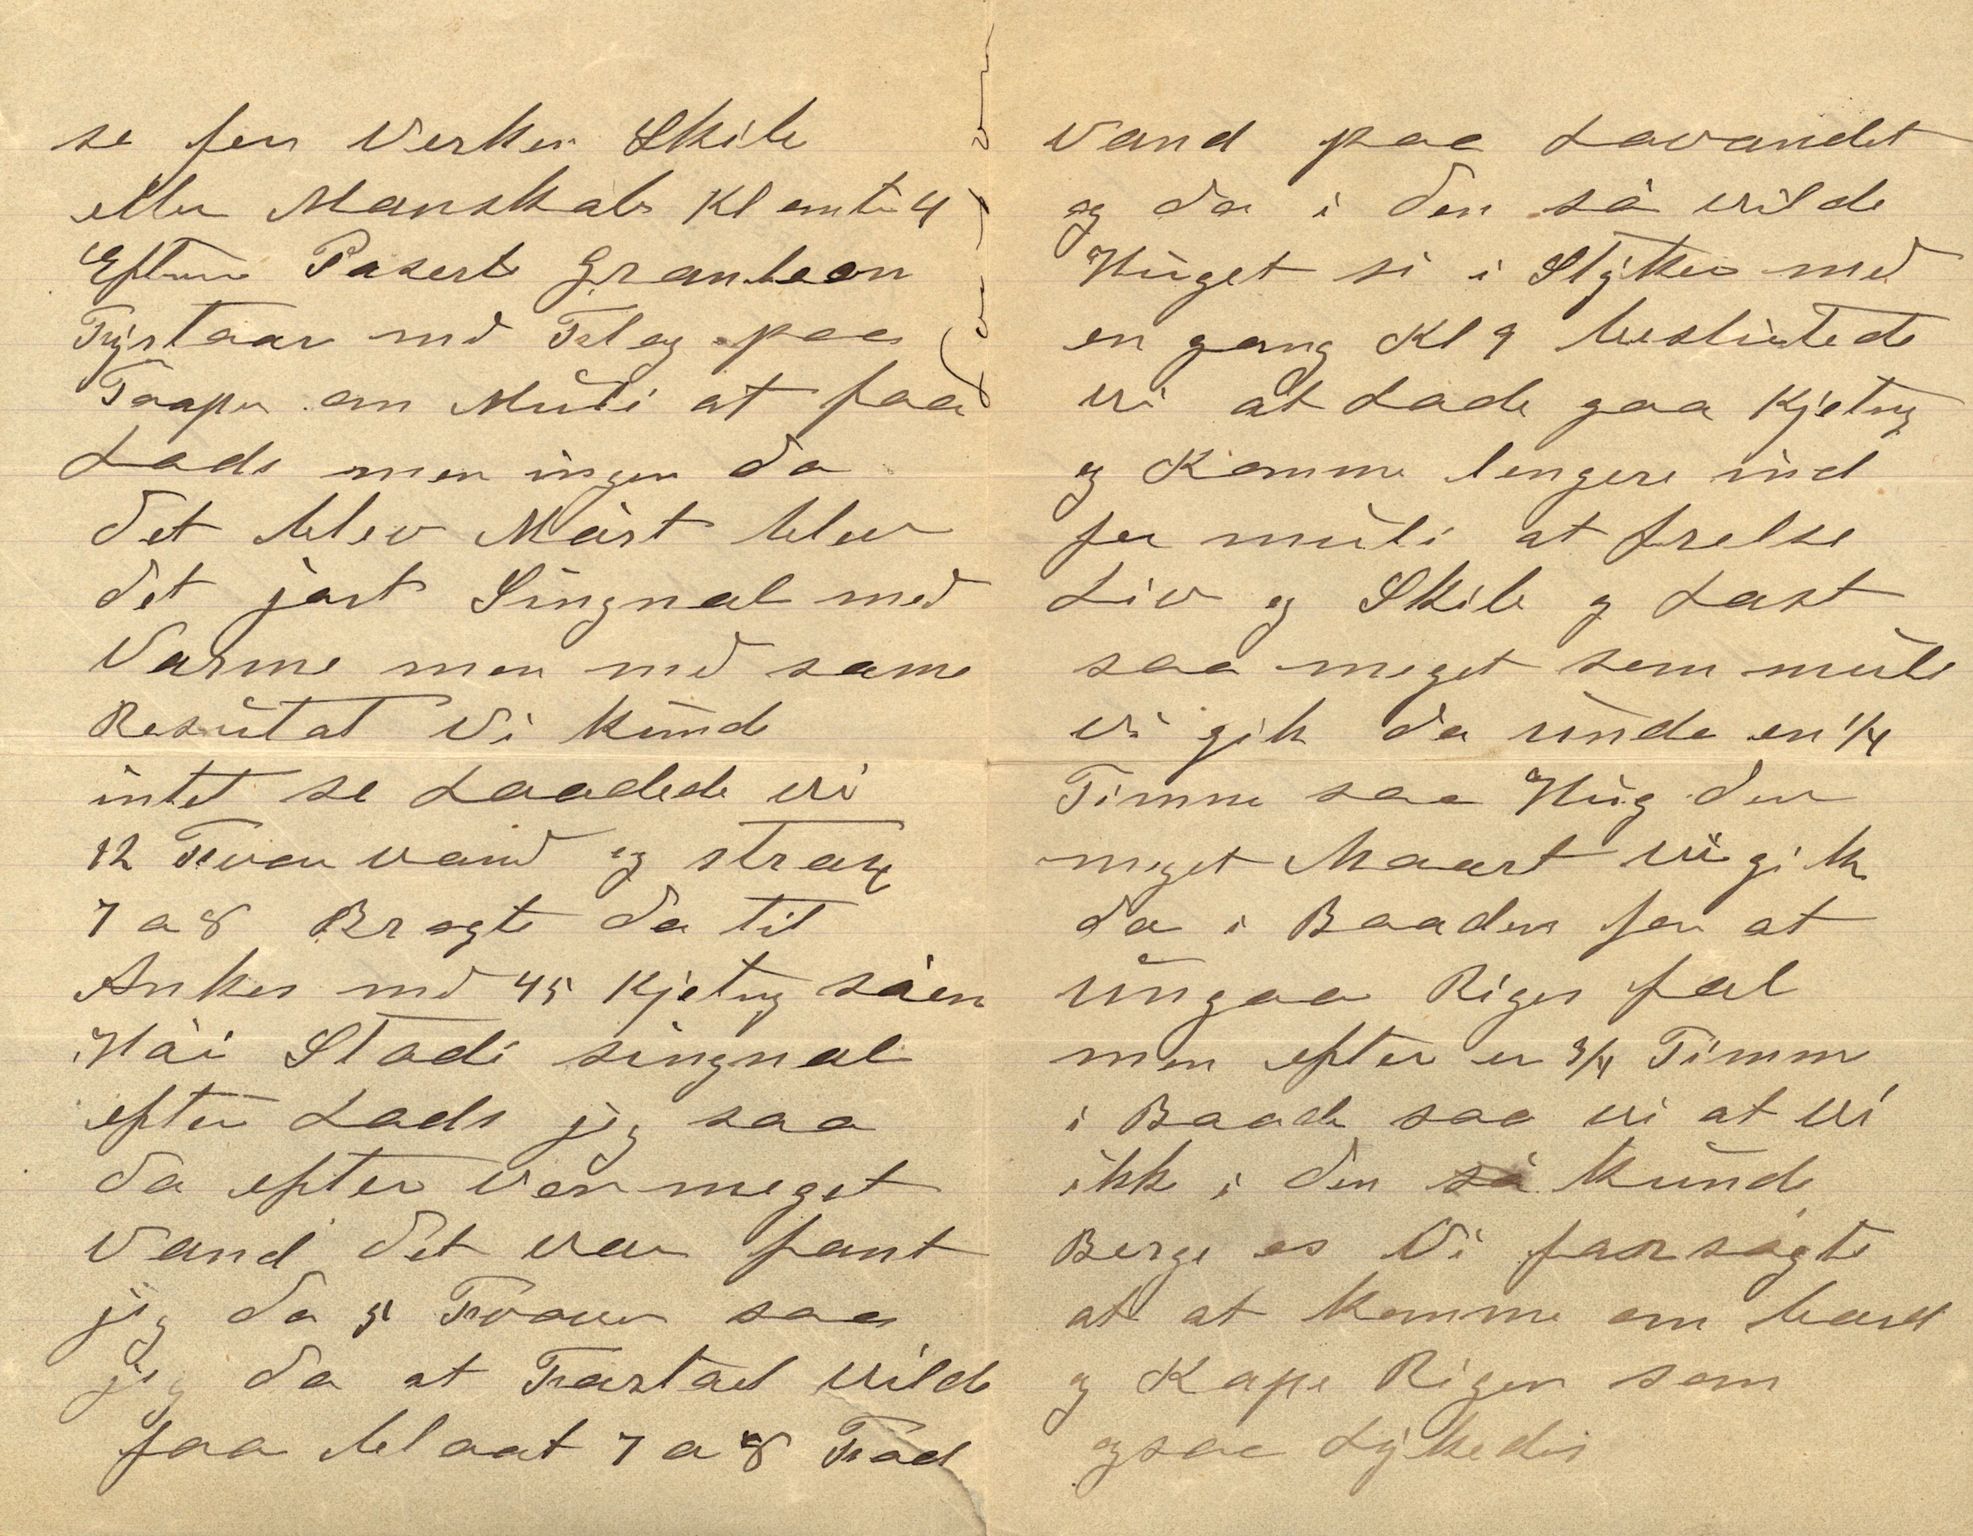 se for Verken Skib
eller Manskab Kl omtr 4
Efterm Paserte Granton
Fyrtaar med Flag paa
Toppen om Muli at faa
Lods men ingen da
det blev Mørt blev
det jort Singnal med
Varme men med same
Resultat Vi kunde
intet se Laadede vi
12 Favn vand og strax
7 a 8 Bragte da til
Anker med 45 Kjetng såen
Høi Stadi singnal
efter Lods jeg saa
da efter vor meget
Vand det var fant
jeg da 5 Favn saa
jeg da at Fartøiet vilde
faa blaat 7 a 8 Fod
Vand paa Lavandet
og da i den sø vilde
Hugget si i Styker med
en gang Kl 9 beslutede
vi at Lade gaa Kjetng
og Komme lengere ind
for muli at frelse
Liv og Skib og Last
saa meget som muli
vi gik da unde en 1/4
Timme saa Hug den
meget Haart vi gik
da i Baaden for at
Ungaa Rigen fal
men efter en 3/4 Timm
i Baade saa vi at vi
ikke i den sø kunde
Berge os Vi forsøgte
at at komme om bord
og Kape Rigen som
ogsaa Lykedis